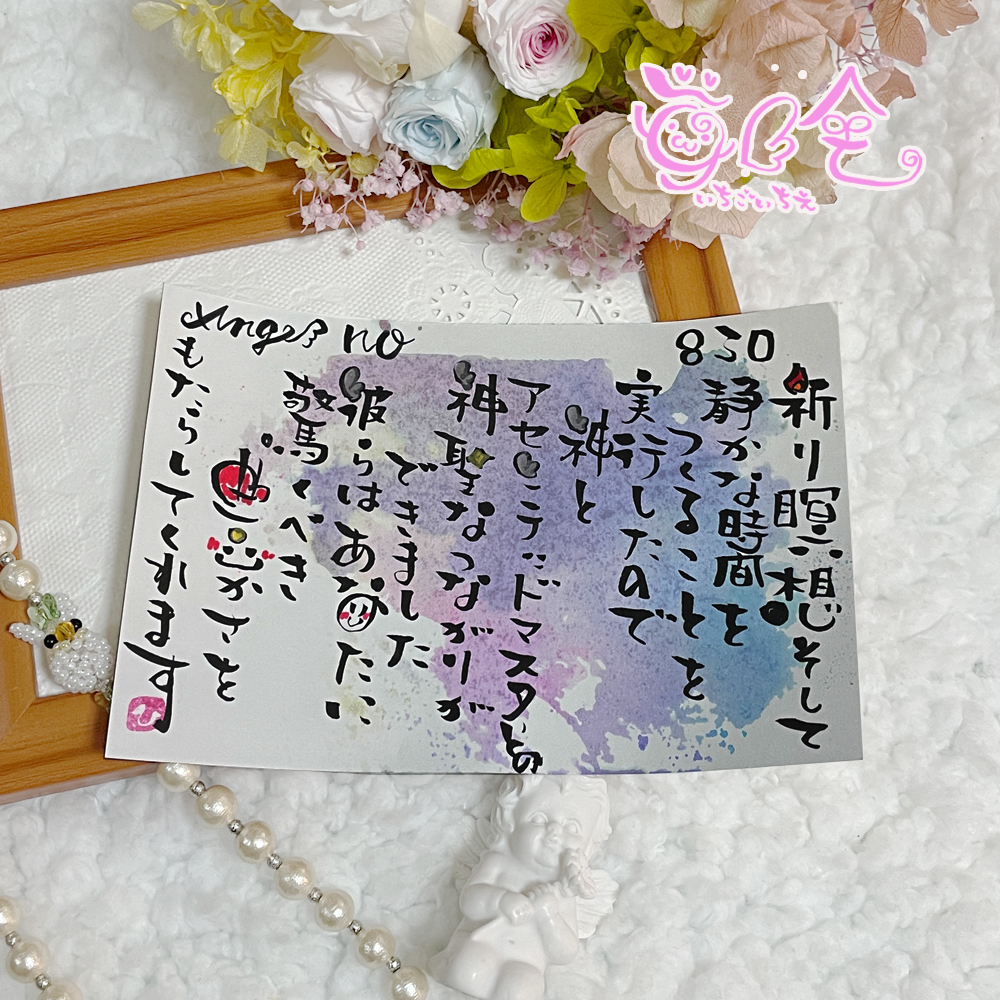 Angel no 830
祈り瞑想そして
静かな時間を
つくることを
実行したので
神と
アセンテッドマスターとの
神聖なつながりが
できました
彼らはあなたに
驚くべき
豊かさを
もたらしてくれます
いちごいちえ